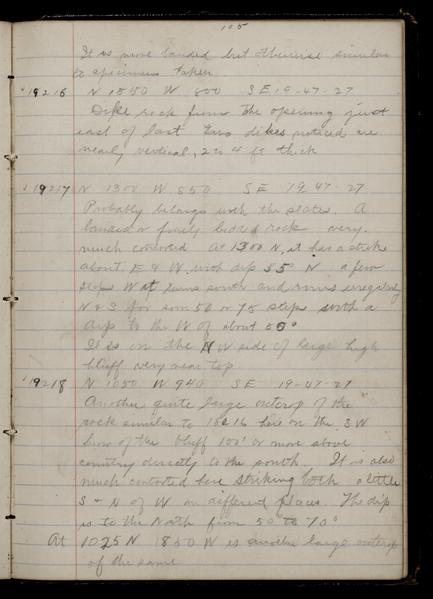 105
It is more banded but otherwise similar
to specimens taken
19216 N 1550 W 800 SE 19-47-27
Dike rock from the opening just
east of last two dikes noticed are
nearly vertical, 2 to 4 ft thick
19217 N 1300 W 850 SE 19-47-27
Probably belongs with the slates. A
banded or finely bedded rock very
much contorted At 1300 N, it has a strike
about E & W, with dip 85° N a few
steps W it turns south and runs irregularly
N & S for som 50 or 75 steps with a
dip to the W of about 60°
It is in the N W side of large high
bluff very near top
19218 N 1050 W 940 SE 19-47-27
Another quite large outcrop of the
rock similar to 16216 here on the SW
brow of the bluff 100' or more above
country directly to the south. It is also
much contorted here striking both a little
S & N of W on different places. The dip
is to the North from 50° to 70°
At 1025 N 1850 W is another large outcrop
of the same